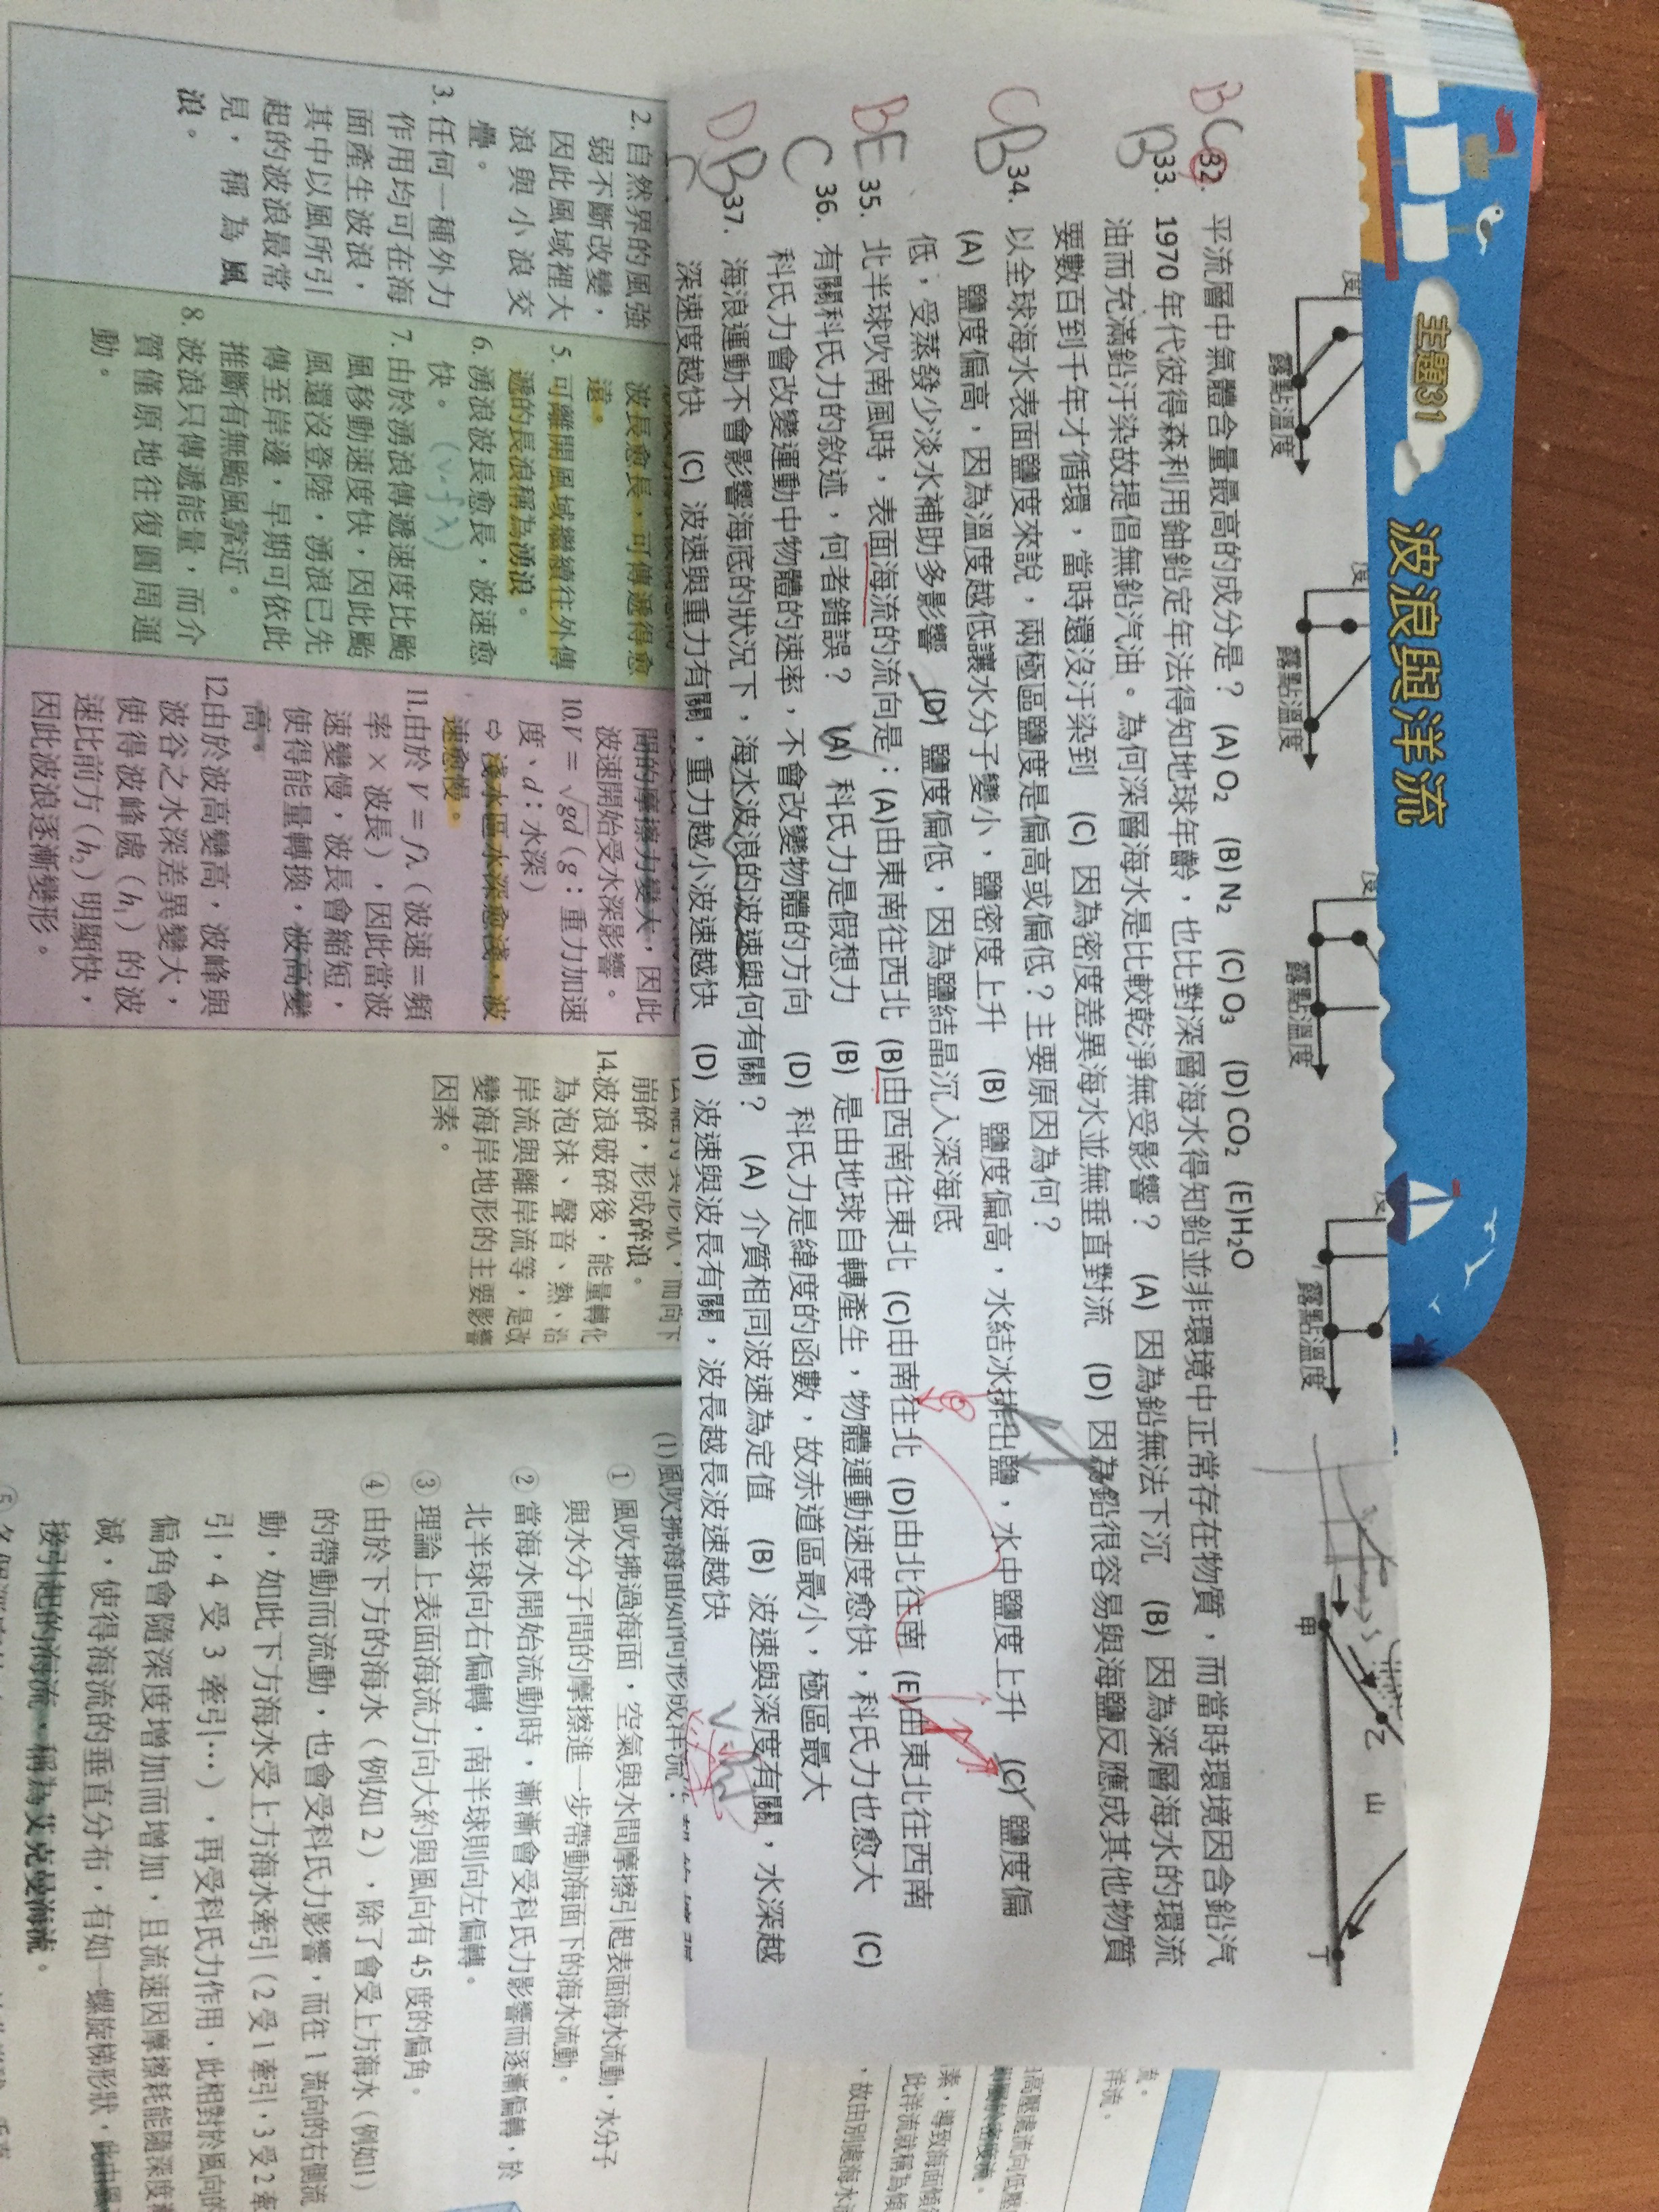 主題31
波浪與洋流
露點溫度
露點溫度
露點溫度
露點溫度
甲
乙
山
丁
BC 32. 平流層中氣體含量最高的成分是？ (A) O₂ (B) N₂ (C) O₃ (D) CO₂ (E)H₂O
B 33. 1970 年代彼得森利用鈾鉛定年法得知地球年齡，也比對深層海水得知鉛並非環境中正常存在物質，而當時環境因含鉛汽
油而充滿鉛汙染故提倡無鉛汽油。為何深層海水是比較乾淨無受影響？ (A) 因為鉛無法下沉 (B) 因為深層海水的環流
要數百到千年才循環，當時還沒汙染到 (C) 因為密度差異海水並無垂直對流 (D) 因為鉛很容易與海鹽反應成其他物質
CB 34. 以全球海水表面鹽度來說，兩極區鹽度是偏高或偏低？主要原因為何？
(A) 鹽度偏高，因為溫度越低讓水分子變小，鹽密度上升 (B) 鹽度偏高，水結冰排出鹽，水中鹽度上升 (C) 鹽度偏
低，受蒸發少淡水補助多影響 (D) 鹽度偏低，因為鹽結晶沉入深海底
BE 35. 北半球吹南風時，表面海流的流向是：(A)由東南往西北 (B)由西南往東北 (C)由南往北 (D)由北往南 (E)由東北往西南
C 36. 有關科氏力的敘述，何者錯誤？ (A) 科氏力是假想力 (B) 是由地球自轉產生，物體運動速度愈快，科氏力也愈大 (C)
科氏力會改變運動中物體的速率，不會改變物體的方向 (D) 科氏力是緯度的函數，故赤道區最小，極區最大
DB 37. 海浪運動不會影響海底的狀況下，海水波浪的波速與何有關？ (A) 介質相同波速為定值 (B) 波速與深度有關，水深越
深速度越快 (C) 波速與重力有關，重力越小波速越快 (D) 波速與波長有關，波長越長波速越快
2. 自然界的風強
弱不斷改變，
因此風域裡大
浪與小浪交
疊。
3. 任何一種外力
作用均可在海
面產生波浪，
其中以風所引
起的波浪最常
見，稱為風
浪。
波長愈長，可傳遞得愈
遠。
5. 可離開風域繼續往外傳
遞的長浪稱為湧浪。
6. 湧浪波長愈長，波速愈
快。 (v=fλ)
7. 由於湧浪傳遞速度比颱
風移動速度快，因此颱
風還沒登陸，湧浪已先
傳至岸邊，早期可依此
推斷有無颱風靠近。
8. 波浪只傳遞能量，而介
質僅原地往復圓周運
動。
間的摩擦力變大，因此
波速開始受水深影響。
10. V = √gd（g：重力加速
度、d：水深）
⇨ 淺水區水深愈淺，波
速愈慢。
11. 由於 V = fλ（波速＝頻
率 × 波長），因此當波
速變慢，波長會縮短，
使得能量轉換，波高變
高。
12. 由於波高變高，波峰與
波谷之水深差異變大，
使得波峰處（h₁）的波
速比前方（h₂）明顯快，
因此波浪逐漸變形。
崩碎，形成碎浪。
14. 波浪破碎後，能量轉化
為泡沫、聲音、熱、沿
岸流與離岸流等，是改
變海岸地形的主要影響
因素。
(1) 風吹拂海面如何形成洋流：
① 風吹拂過海面，空氣與水間摩擦引起表面海水流動，水分子
與水分子間的摩擦進一步帶動海面下的海水流動。
② 當海水開始流動時，漸漸會受科氏力影響而逐漸偏轉，於
北半球向右偏轉，南半球則向左偏轉。
③ 理論上表面海流方向大約與風向有 45 度的偏角。
④ 由於下方的海水（例如 2），除了會受上方海水（例如1）
的帶動而流動，也會受科氏力影響，而往 1 流向的右側流
動，如此下方海水受上方海水牽引（2 受 1 牽引，3 受 2 牽
引，4 受 3 牽引…），再受科氏力作用，此相對於風向的
偏角會隨深度增加而增加，且流速因摩擦耗能隨深度
減，使得海流的垂直分布，有如一螺旋梯形狀，此由
接引起的海流，稱為艾克曼海流。
流。
洋流。
高壓處流向低壓
素，導致海面傾
此洋流就稱為傾
，故由別處海水